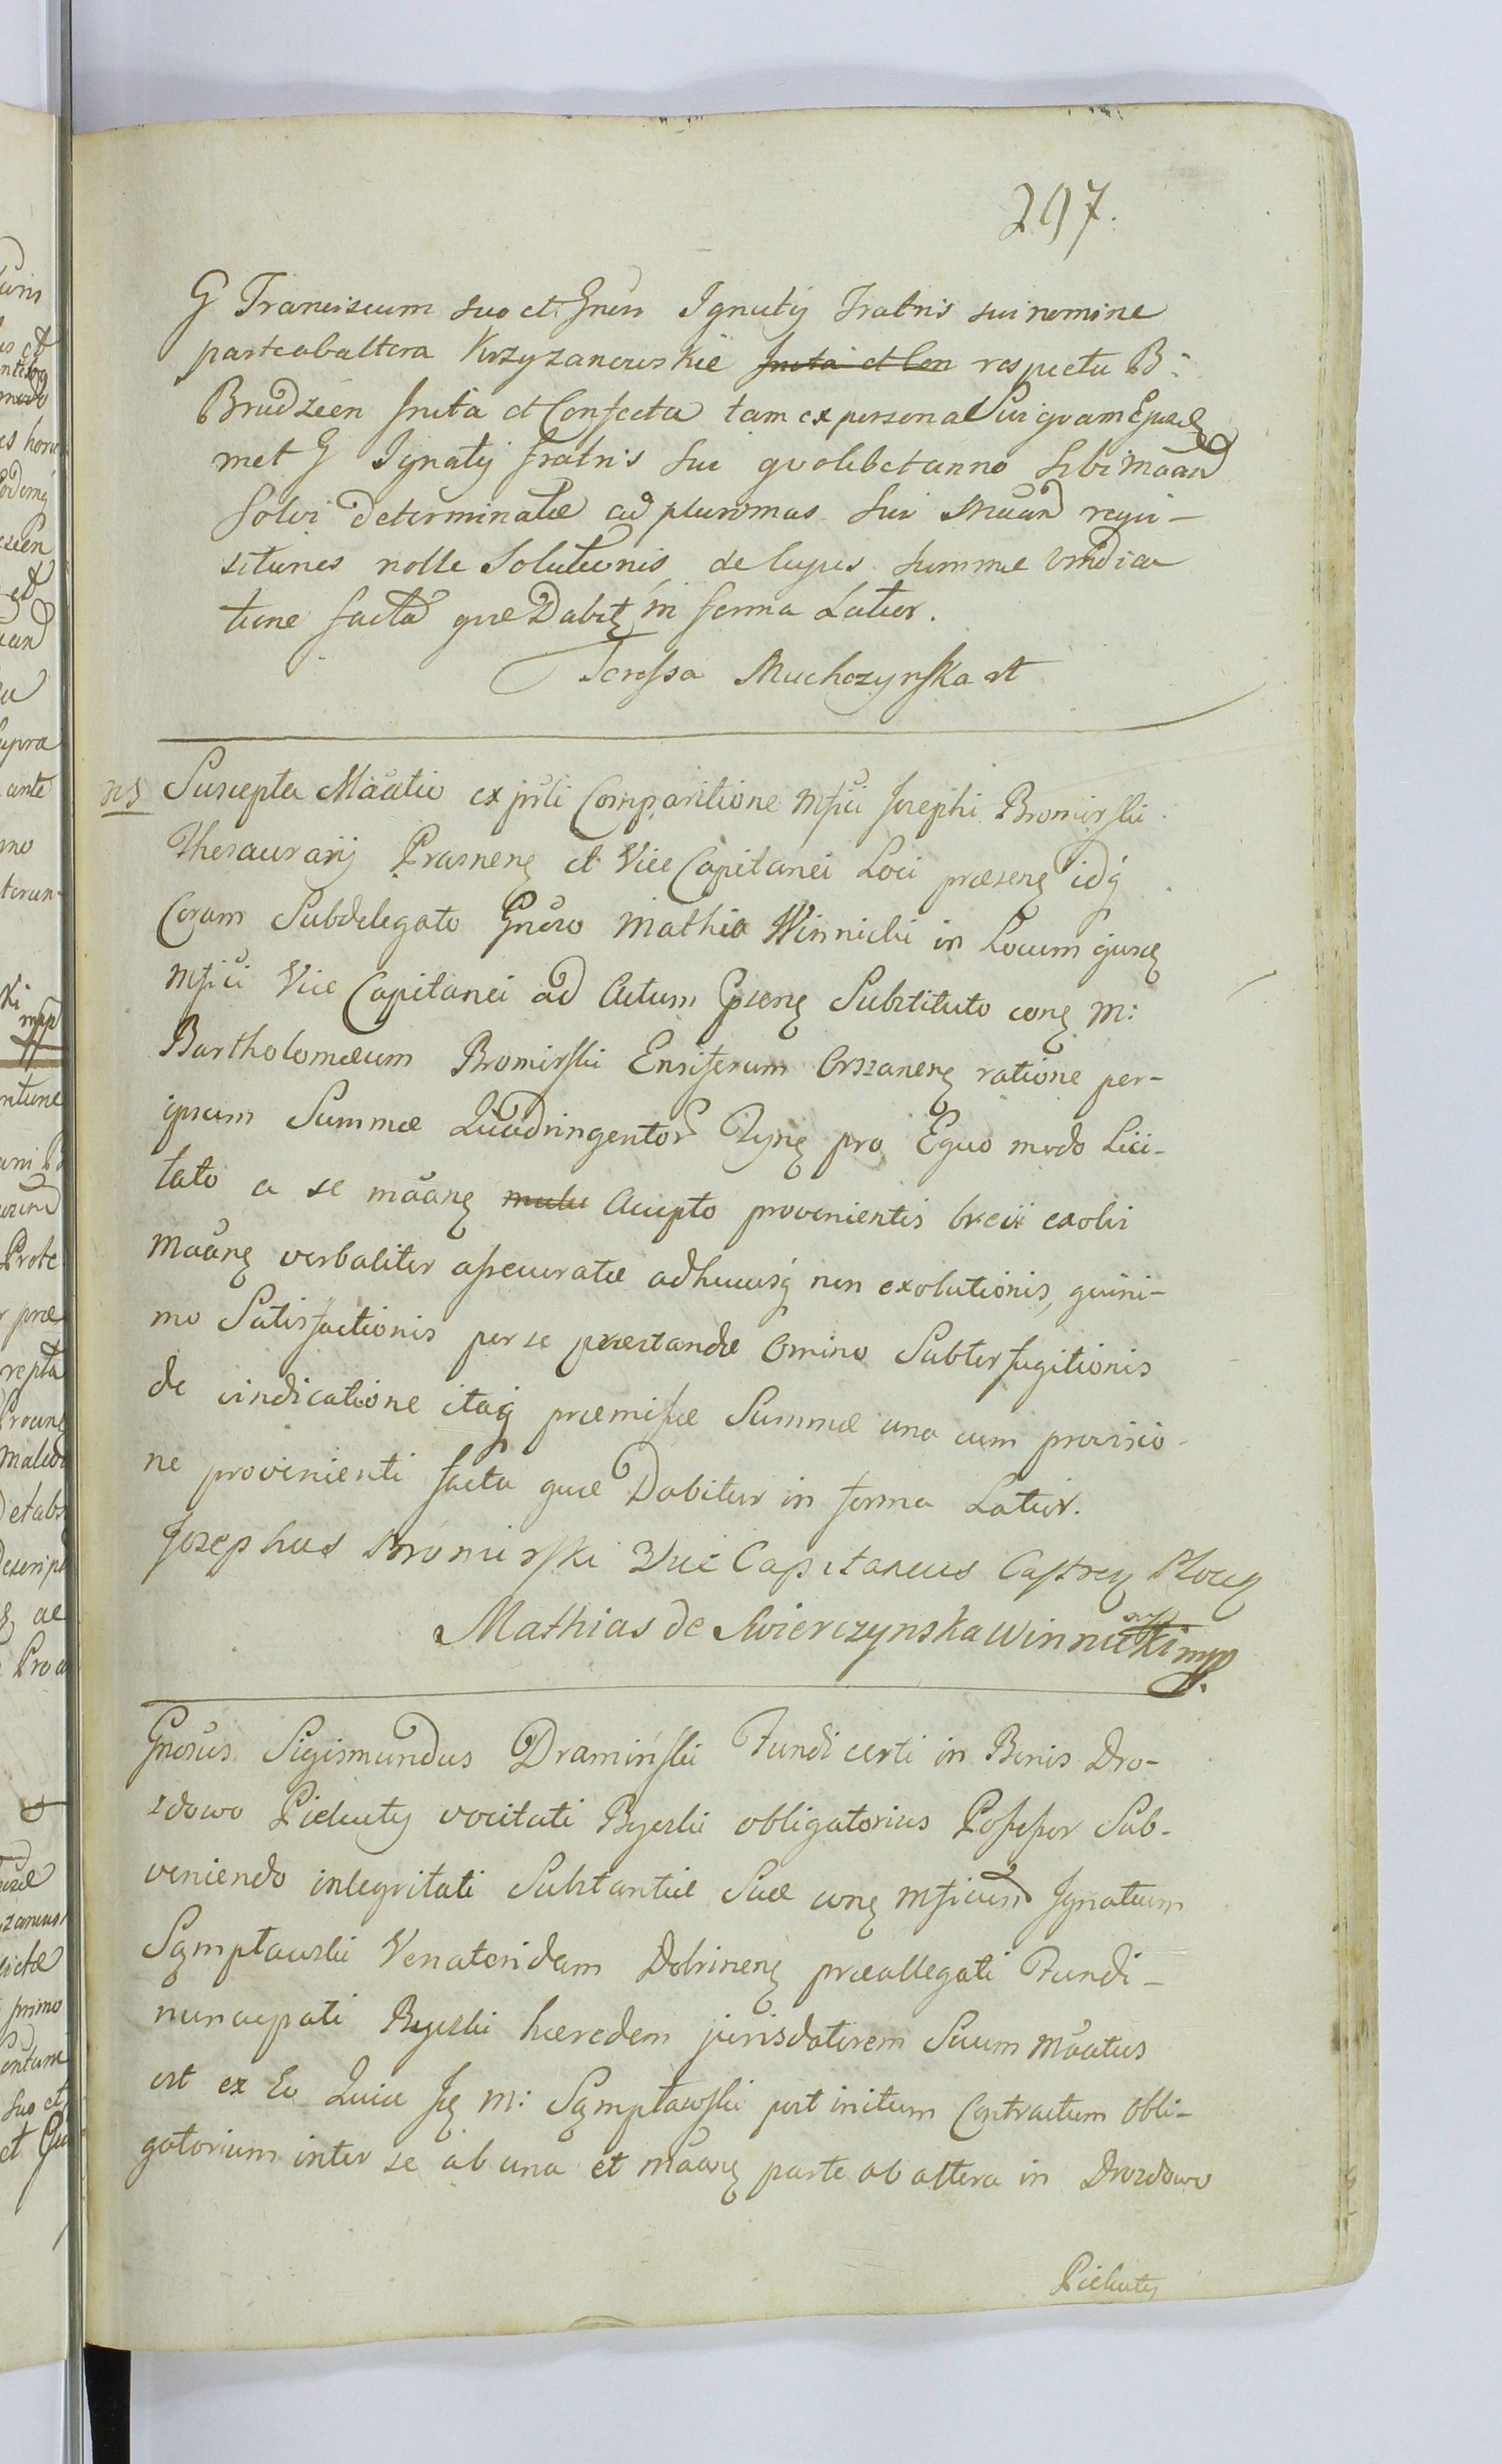 297.
G Franciscum suo et Gnŭsi Ignatij Fratris sui nomine
parte ab altera Krzyzanowskie Inita et Con respectu B:
Brudzeen Inita et Confecta tam ex persona Sui qvam Ejusd
met G Ignatij Fratris sui qvolibet anno sibi Māan
Solvi determinatæ ad plurimas sui Māan reqvi-
sitiones nolle Solutionis de cujus summæ vindica
tione facta qvæ Dabit in forma Latior.
Teressa Muchczynska st
ns
Suscepta Māatio ex prŭli Comparitione Mfici Josephi Bromirski
Thesaurarij Prasnens et Vice Capitanei Loci præsens idq
Coram Subdelegato Gnŏso Mathia Winnicki in Locum ejusd
Mfici Vice Capitanei ad Actum Prsens Substituto cons M:
Bartholomæum Bromirski Ensiferum Orszanens ratione per-
ipsum Summæ Quadringentor Fnp pro Eqvo modo Lici-
tato a se māans malu Accepto provenientis brevi exolvi
Māans verbaliter assecuratæ adhucusq non exolutionis, qvini-
mo Satisfactionis per se præstandæ Omino Subterfugitionis
de vindicatione itaq præmissæ Summæ una cum provisio-
ne provenienti facta quæ Dabitur in forma Latior.
Josephus Bromirski Vice Capitaneus Castren Plocen
Mathias de Swierczynska Winnicki mpp.
Gnŏsus Sigismundus Dramiński Fundi certi in Bonis Dro-
zdowo Pieluty vocitati Byerki obligatorius Possessor Sub-
veniendo integritati Substantiæ Suæ cons Mficum Ignatium
Sząmpławski Venatoridam Dobrinens præallegati Fundi-
nuncupati Byerki hæredem jurisdatorem Suum Māatus
est ex Eo Quia Is M: Sząmpławski post initum Contractum Obli-
gatorium inter se ab una et māans parte ab altera in Drozdowo
Pieluty